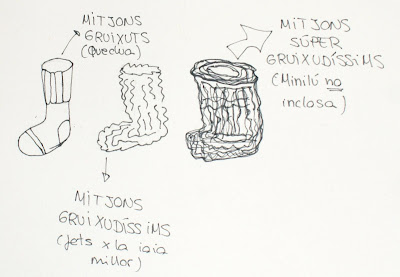 MITJONS
GRUIXUTS
(Quechua)
MITJONS
SÚPER
GRUIXUDÍSSIMS
(Minilú no
inclosa)
MITJONS
GRUIXUDÍSSIMS
(fets x la iaia
millor)